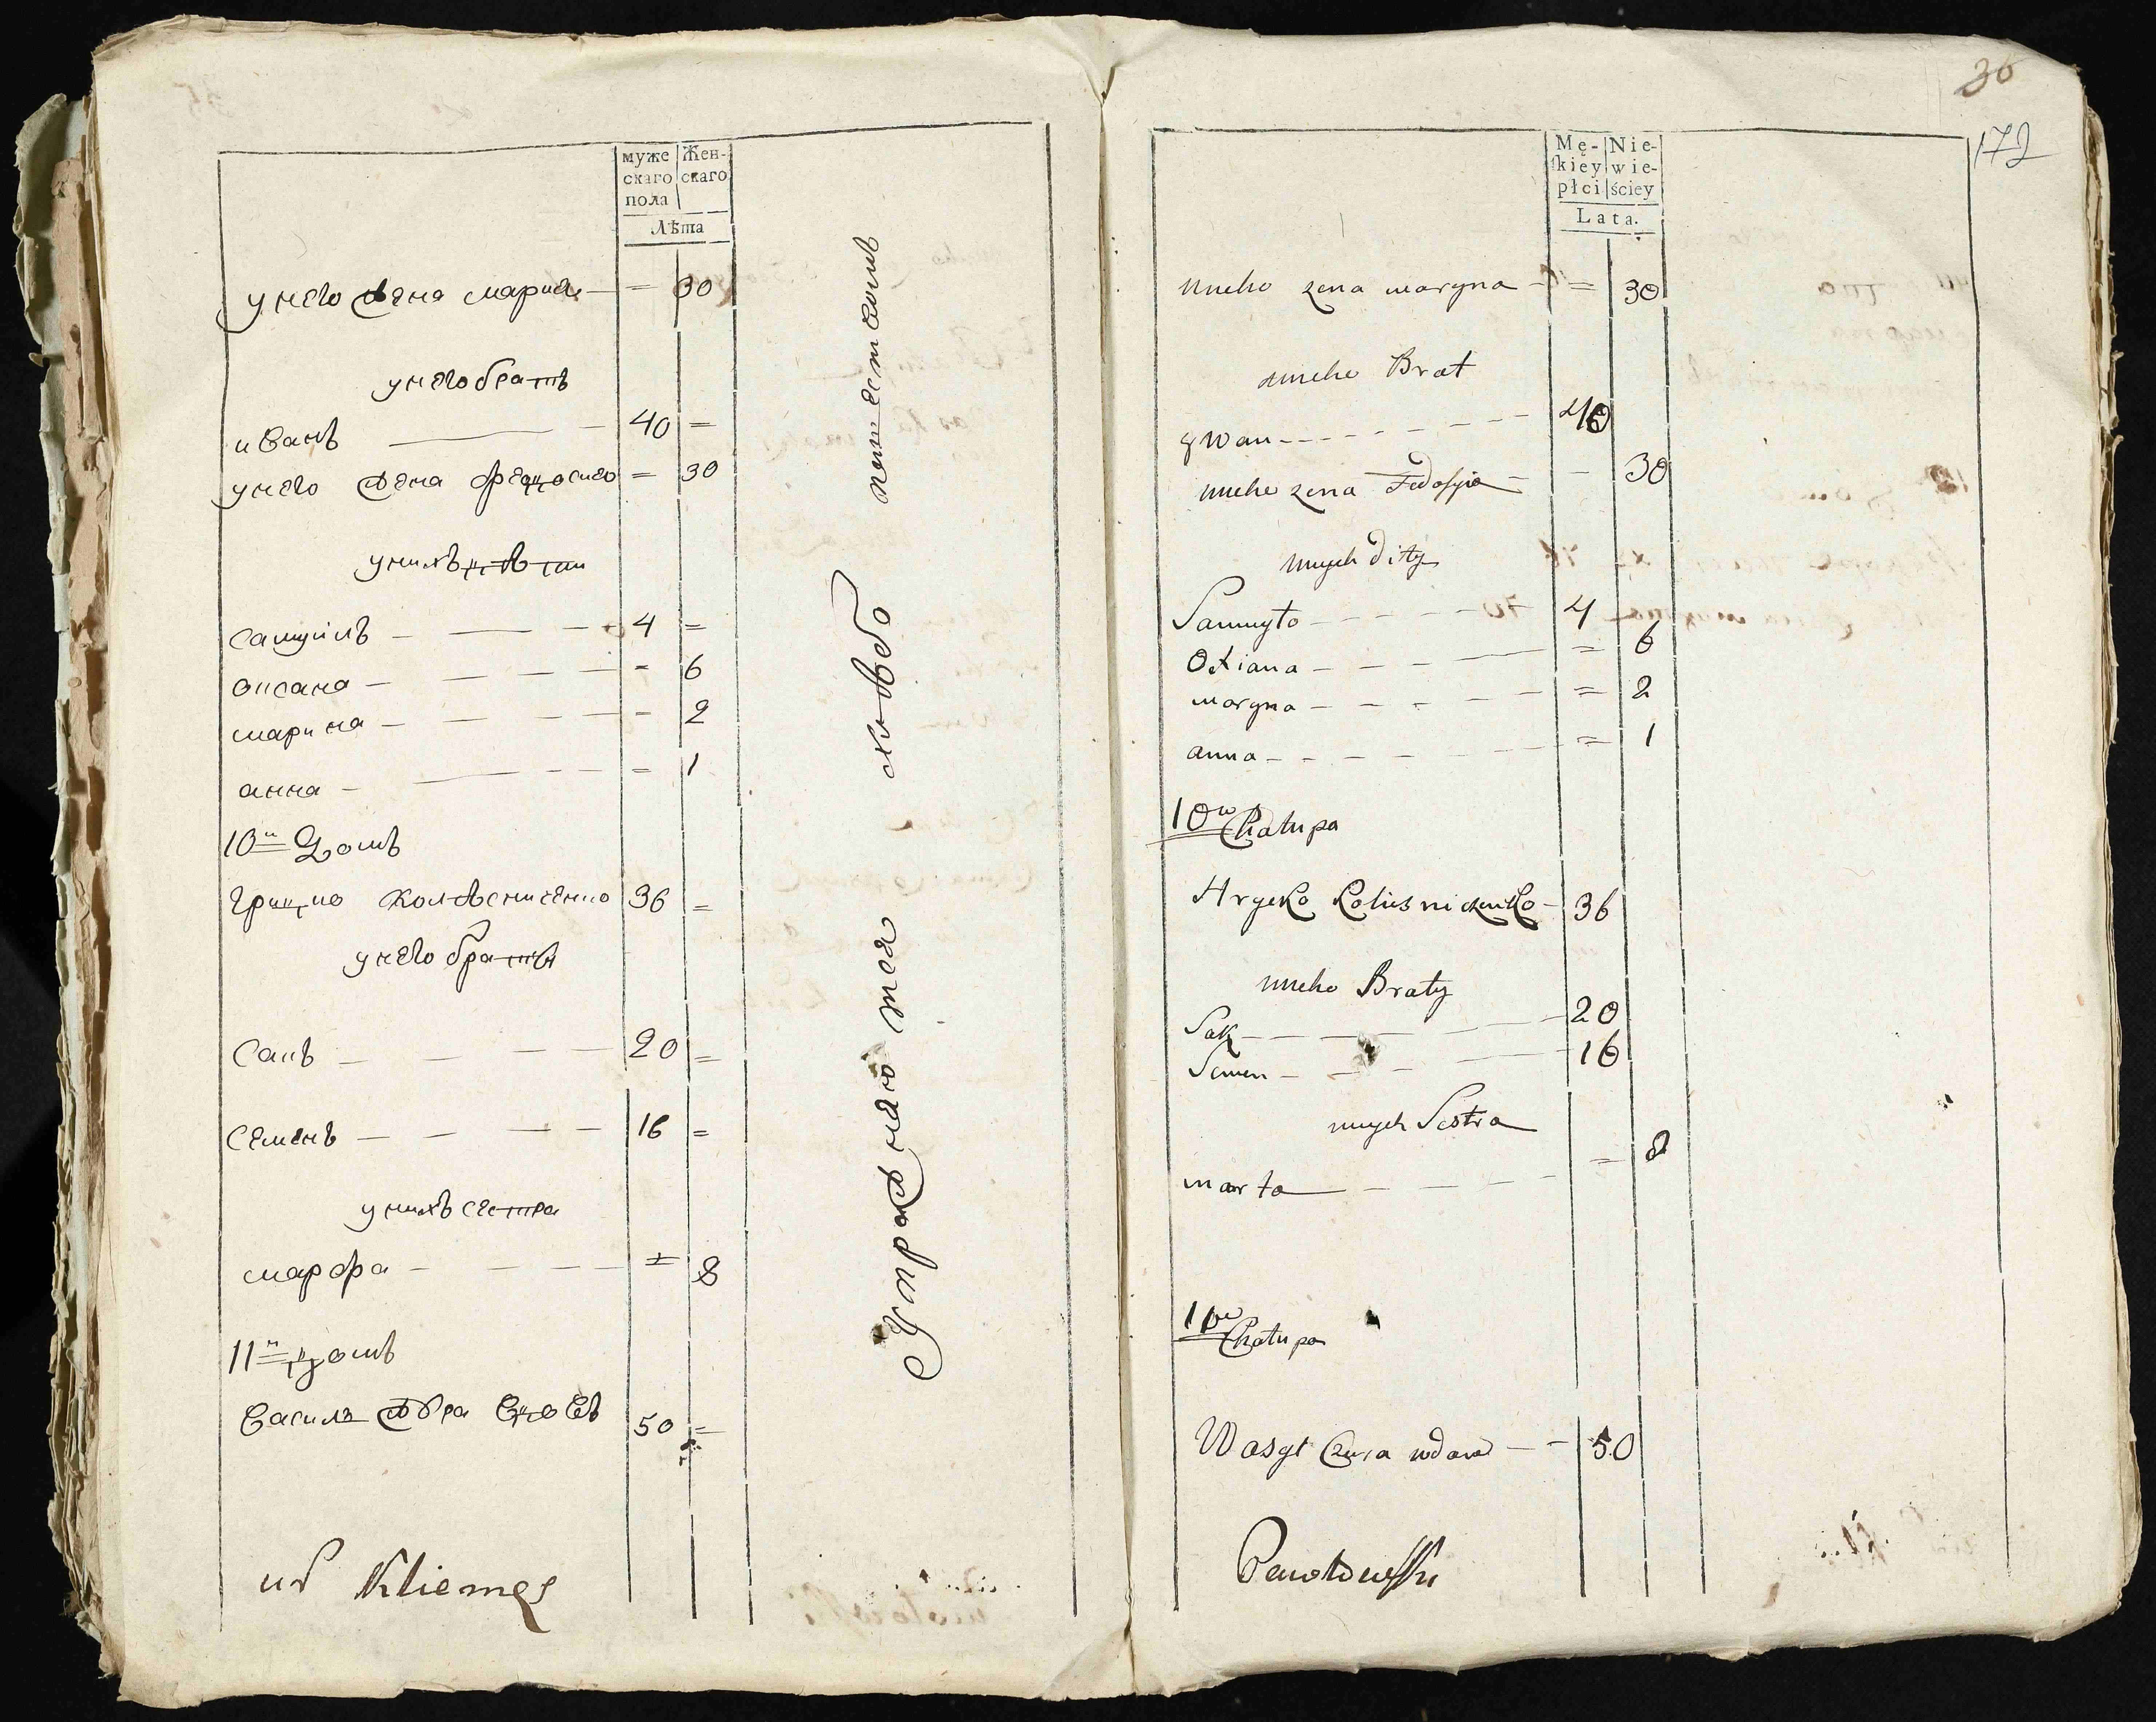 муже
скаго
пола
Жен-
скаго
Лѣта
у него жена мария — = 30
у него братъ
иванъ — 40 =
у него жена федосия = 30
у нихъ дѣти
самуилъ — 4 =
оксана — = 6
марина — = 2
анна — = 1
10й Домъ
грицко колѣсниченко 36 =
у него браты
сакъ — 20 =
семенъ — 16 =
у нихъ сестра
марфа — = 8
11й домъ
василь вдовъ 50 =
Kliemes
Упражняются хлебо
36
172
Mę-
skiey
płci
Nie-
wie-
ściey
Lata.
uneho zena maryna — = 30
uneho Brat
ywan - - - 40
uneho zena Fedosyia — - 30
unych dity
Samuyło - - - 4
Oxiana - - - = 6
maryna - - - = 2
anna - - - = 1
10w Chałupa
Hryćko Kolisniczenko - 36
uneho Braty
Sak — 20
Semen — 16
unych Sestra
marta — = 8
11w Chałupa
Wasyl wdow — 50